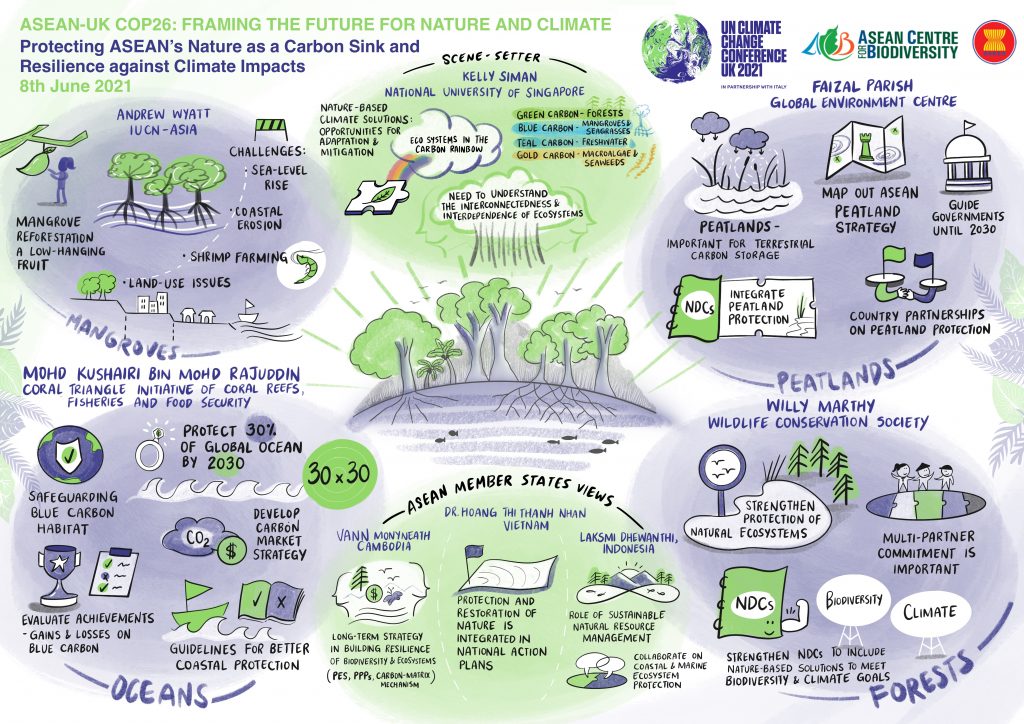 ASEAN-UK COP26: FRAMING THE FUTURE FOR NATURE AND CLIMATE
Protecting ASEAN's Nature as a Carbon Sink and
Resilience against Climate Impacts
8th June 2021
UN CLIMATE
CHANGE
CONFERENCE
UK 2021
IN PARTNERSHIP WITH ITALY
ASEAN CENTRE
FOR BIODIVERSITY
SCENE-SETTER
KELLY SIMAN
NATIONAL UNIVERSITY OF SINGAPORE
NATURE-BASED
CLIMATE SOLUTIONS:
OPPORTUNITIES FOR
ADAPTATION &
MITIGATION
ECO SYSTEMS IN THE
CARBON RAINBOW
GREEN CARBON - FORESTS
BLUE CARBON - MANGROVES &
SEAGRASSES
TEAL CARBON - FRESHWATER
GOLD CARBON - MACROALGAE &
SEAWEEDS
NEED TO UNDERSTAND
THE INTERCONNECTEDNESS &
INTERDEPENDENCE OF ECOSYSTEMS
ANDREW WYATT
IUCN-ASIA
CHALLENGES:
• SEA-LEVEL
RISE
• COASTAL
EROSION
• SHRIMP FARMING
• LAND-USE ISSUES
MANGROVE
REFORESTATION
A LOW-HANGING
FRUIT
MANGROVES
FAIZAL PARISH
GLOBAL ENVIRONMENT CENTRE
PEATLANDS -
IMPORTANT FOR TERRESTRIAL
CARBON STORAGE
MAP OUT ASEAN
PEATLAND
STRATEGY
GUIDE
GOVERNMENTS
UNTIL 2030
NDCs
INTEGRATE
PEATLAND
PROTECTION
COUNTRY PARTNERSHIPS
ON PEATLAND PROTECTION
PEATLANDS
MOHD KUSHAIRI BIN MOHD RAJUDDIN
CORAL TRIANGLE INITIATIVE OF CORAL REEFS,
FISHERIES AND FOOD SECURITY
SAFEGUARDING
BLUE CARBON
HABITAT
PROTECT 30%
OF GLOBAL OCEAN
BY 2030
30 x 30
CO2
$
DEVELOP
CARBON
MARKET
STRATEGY
EVALUATE ACHIEVEMENTS
- GAINS & LOSSES ON
BLUE CARBON
GUIDELINES FOR BETTER
COASTAL PROTECTION
OCEANS
ASEAN MEMBER STATES VIEWS
VANN MONYNEATH
CAMBODIA
$
LONG-TERM STRATEGY
IN BUILDING RESILIENCE
OF BIODIVERSITY & ECOSYSTEMS
(PES, PPPs, CARBON-MATRIX)
MECHANISM
DR. HOANG THI THANH NHAN
VIETNAM
PROTECTION AND
RESTORATION OF
NATURE IS
INTEGRATED IN
NATIONAL ACTION
PLANS
LAKSMI DHEWANTHI,
INDONESIA
ROLE OF SUSTAINABLE
NATURAL RESOURCE
MANAGEMENT
COLLABORATE ON
COASTAL & MARINE
ECOSYSTEM
PROTECTION
WILLY MARTHY
WILDLIFE CONSERVATION SOCIETY
STRENGTHEN
PROTECTION OF
NATURAL ECOSYSTEMS
MULTI-PARTNER
COMMITMENT IS
IMPORTANT
NDCs
BIODIVERSITY
CLIMATE
STRENGTHEN NDCs TO INCLUDE
NATURE-BASED SOLUTIONS TO MEET
BIODIVERSITY & CLIMATE GOALS
FORESTS